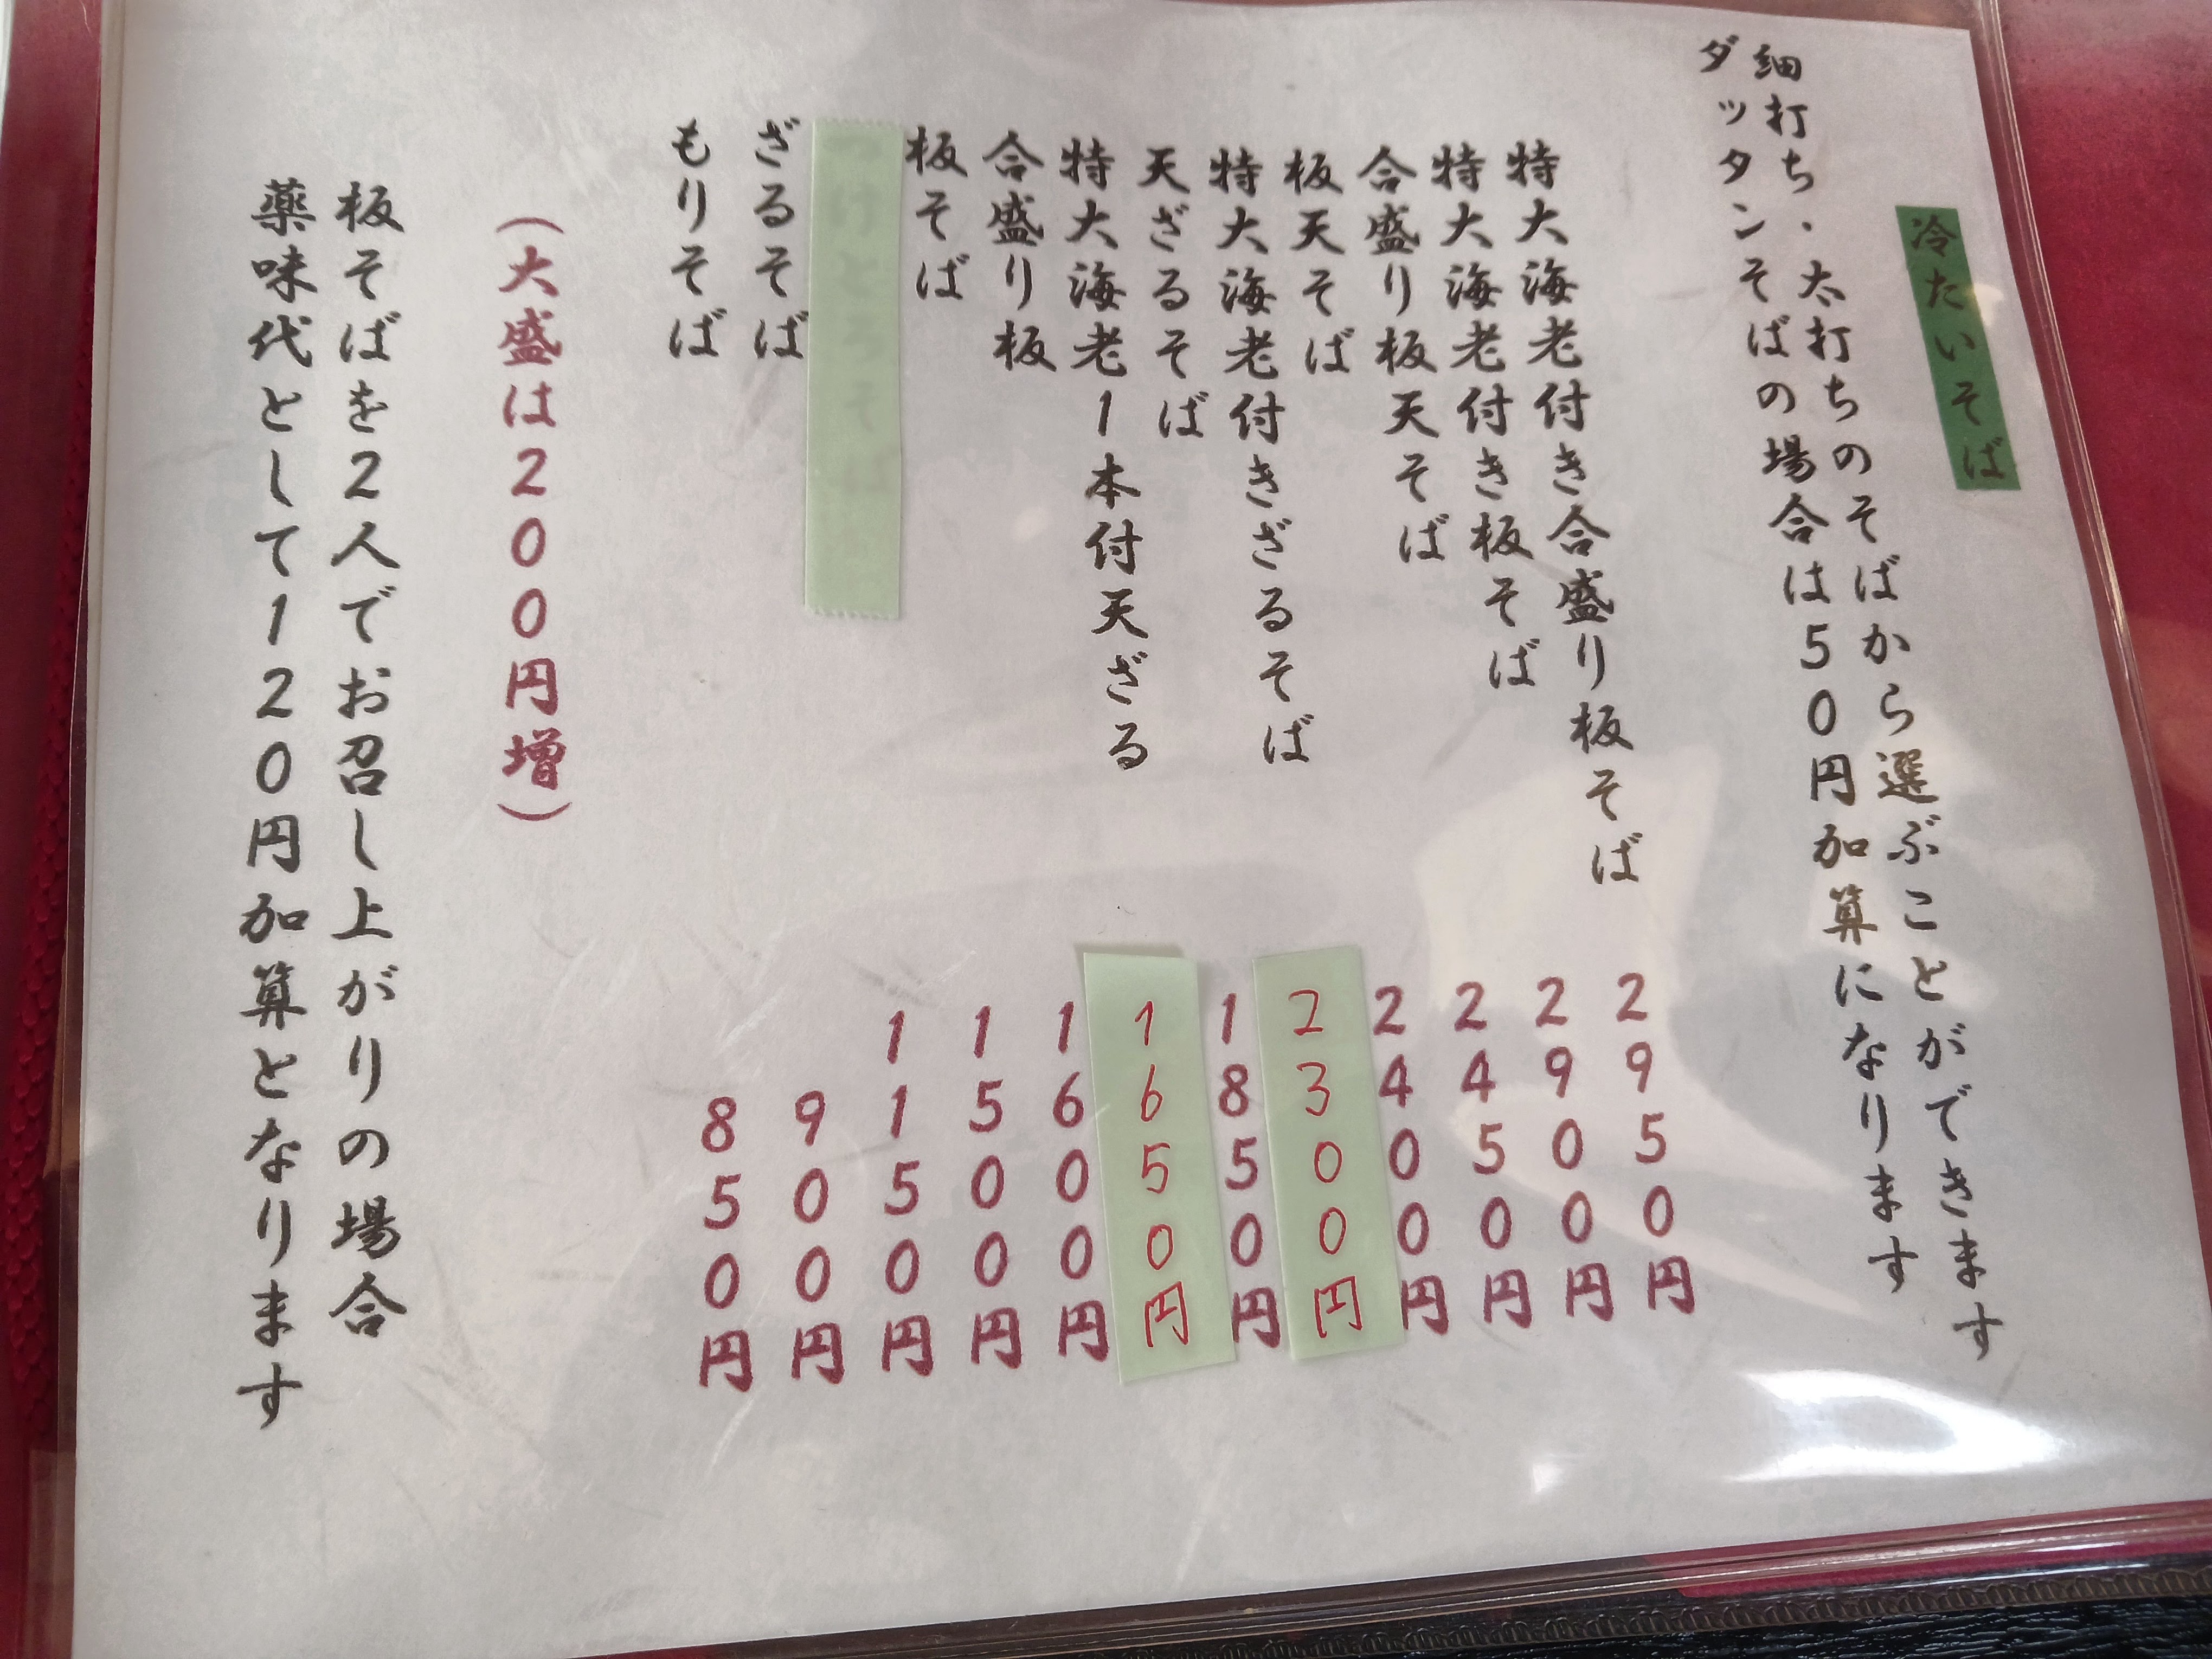 冷たいそば
細打ち・太打ちのそばから選ぶことができます
ダッタンそばの場合は50円加算になります
特大海老付き合盛り板そば 2950円
特大海老付き板そば 2900円
合盛り板天そば 2450円
板天そば 2400円
特大海老付きざるそば 2300円
天ざるそば 1850円
特大海老1本付天ざる 1650円
合盛り板 1600円
板そば 1500円
1150円
ざるそば 900円
もりそば 850円
(大盛は200円増)
板そばを2人でお召し上がりの場合
薬味代として120円加算となります